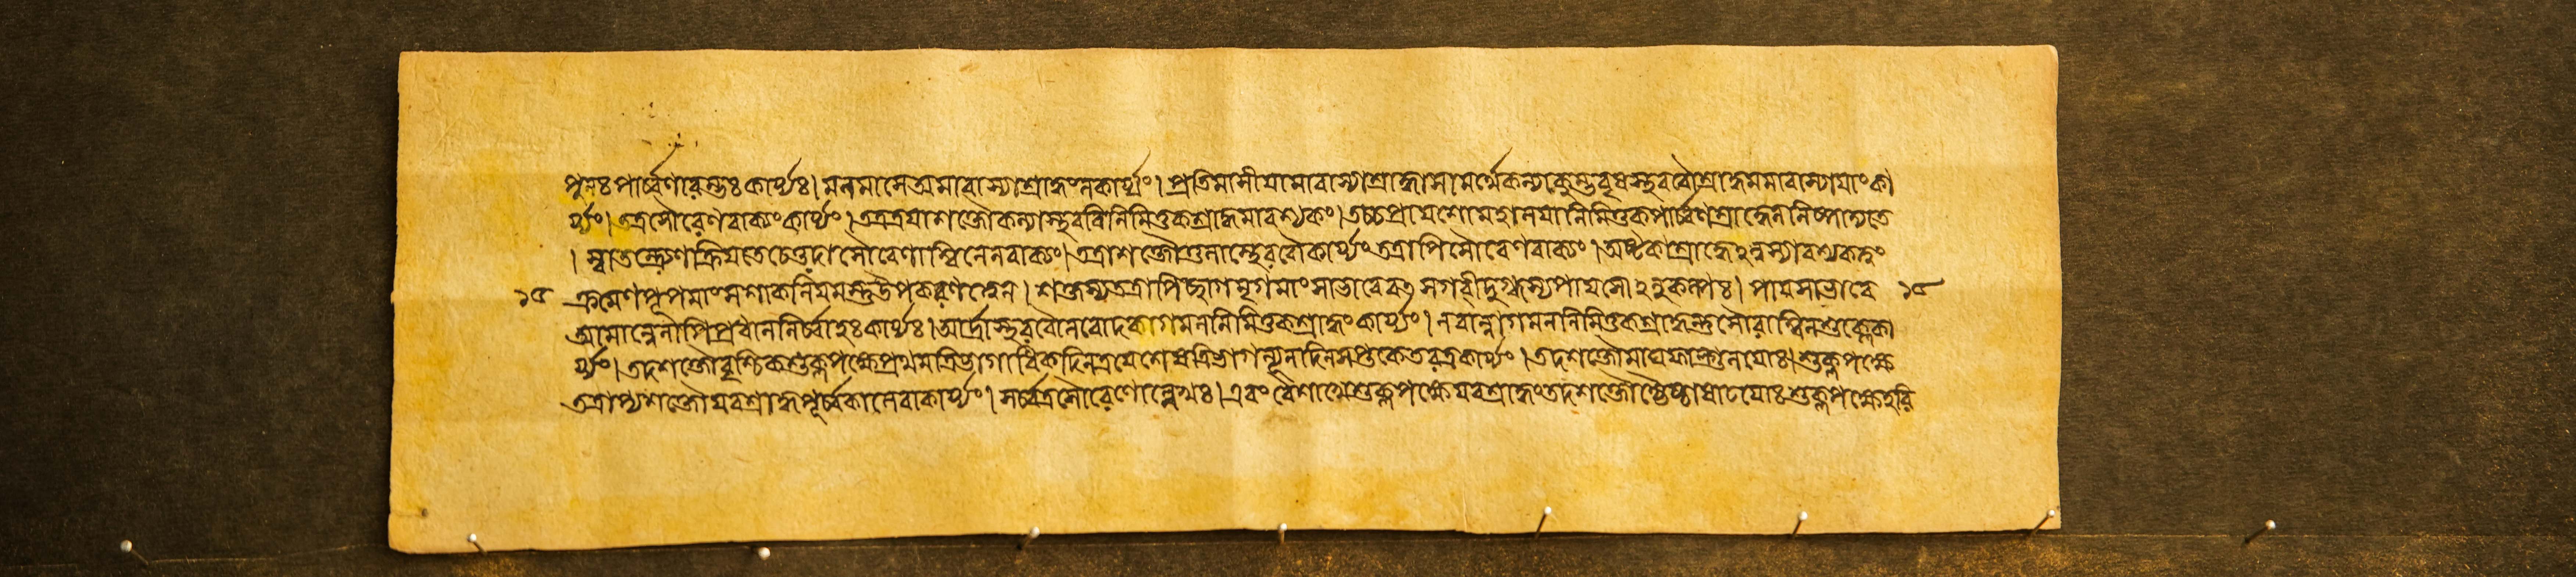 পুনঃ পার্ব্বণারম্ভঃ কার্য্যঃ। মলমাসে অমাবাস্যাশ্রাদ্ধং ন কার্য্যং। প্রতিমাসীয়ামাবাস্যাশ্রাদ্ধাসামর্থ্যে কন্যাকুম্ভবৃষস্থরবৌ শ্রাদ্ধমমাবাস্যায়াং কা
র্য্যং। তত্র সৌরেণ বাক্যং কার্য্যং। তত্রত্রয়াশক্তৌ কন্যাস্থরবিনিমিত্তকশ্রাদ্ধমাবশ্যকং। তচ্চ প্রায়শো মহালয়ানিমিত্তকপার্ব্বণশ্রাদ্ধেন নিষ্পাদ্যতে
। স্বাতন্ত্র্যেণ ক্রিয়তে চেত্তদা সৌরেণাশ্বিনেন বাক্যং। তত্রাশক্তৌ তুলাস্থে রবৌ কার্য্যং তত্রাপি সৌরেণ বাক্যং। অষ্টকাশ্রাদ্ধে
১৫ ক্রমেণ পূপমাংসশাকনিয়মস্তু উপকরণত্বেন। শক্তস্য তত্রাপি ছাগমৃগমাংসাভাবে পায়সো। পায়সাভাবে ১৫
আমান্নেনাপি প্রধাননির্ব্বাহঃ কার্য্যঃ। আর্দ্রাস্থরবৌ নবোদকাগমননিমিত্তকশ্রাদ্ধং কার্য্যং। নবান্নাগমননিমিত্তকশ্রাদ্ধন্তু সৌরাশ্বিনশুক্লে কা
র্য্যং। তদশক্তৌ বৃশ্চিকশুক্লপক্ষে প্রথমত্রিভাগাধিকদিনত্রয়ে শেষত্রিভাগন্যূনদিনসপ্তকেতরত্র কার্য্যং। তদশক্তৌ মাঘফাল্গুনয়োঃ। শুক্লপক্ষে
তত্রাপ্যশক্তৌ যবশ্রাদ্ধপূর্ব্বকালে বা কার্য্যং। সর্ব্বত্র সৌরেণোল্লেখঃ। এবং বৈশাখে শুক্লপক্ষে যবশ্রাদ্ধং তদশক্তৌ জ্যৈষ্ঠাষাঢ়য়োঃ শুক্লপক্ষে হরি